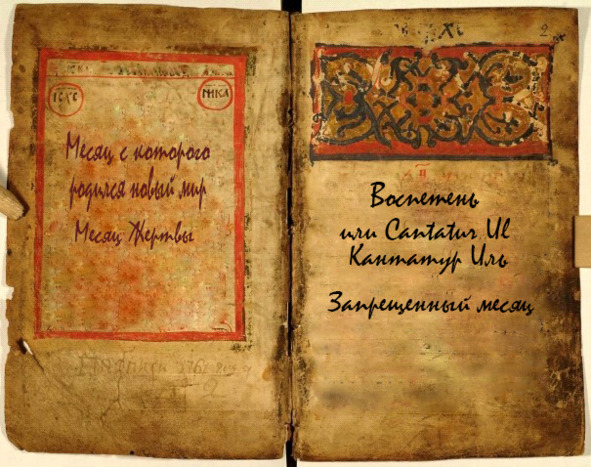 ІСХС
НИКА
Месяц с которого
родился новый мир
Месяц Жертвы
2
Воспетень
или Cantatur Ul
Кантатур Иль
Запрещенный месяц